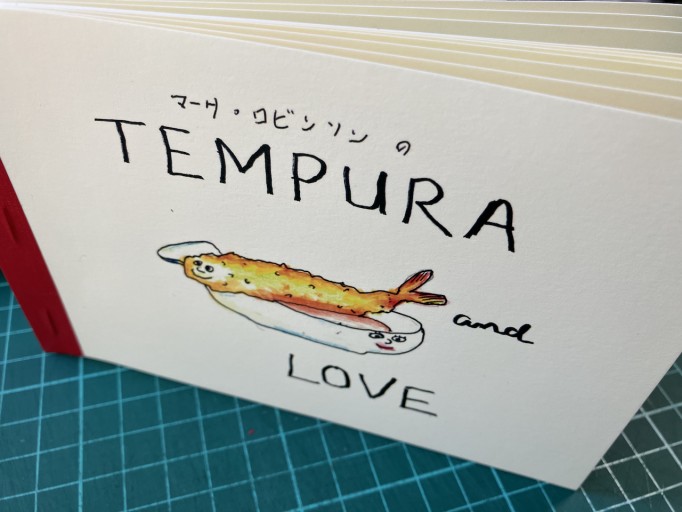 マーサ・ロビンソン の
TEMPURA
and
LOVE